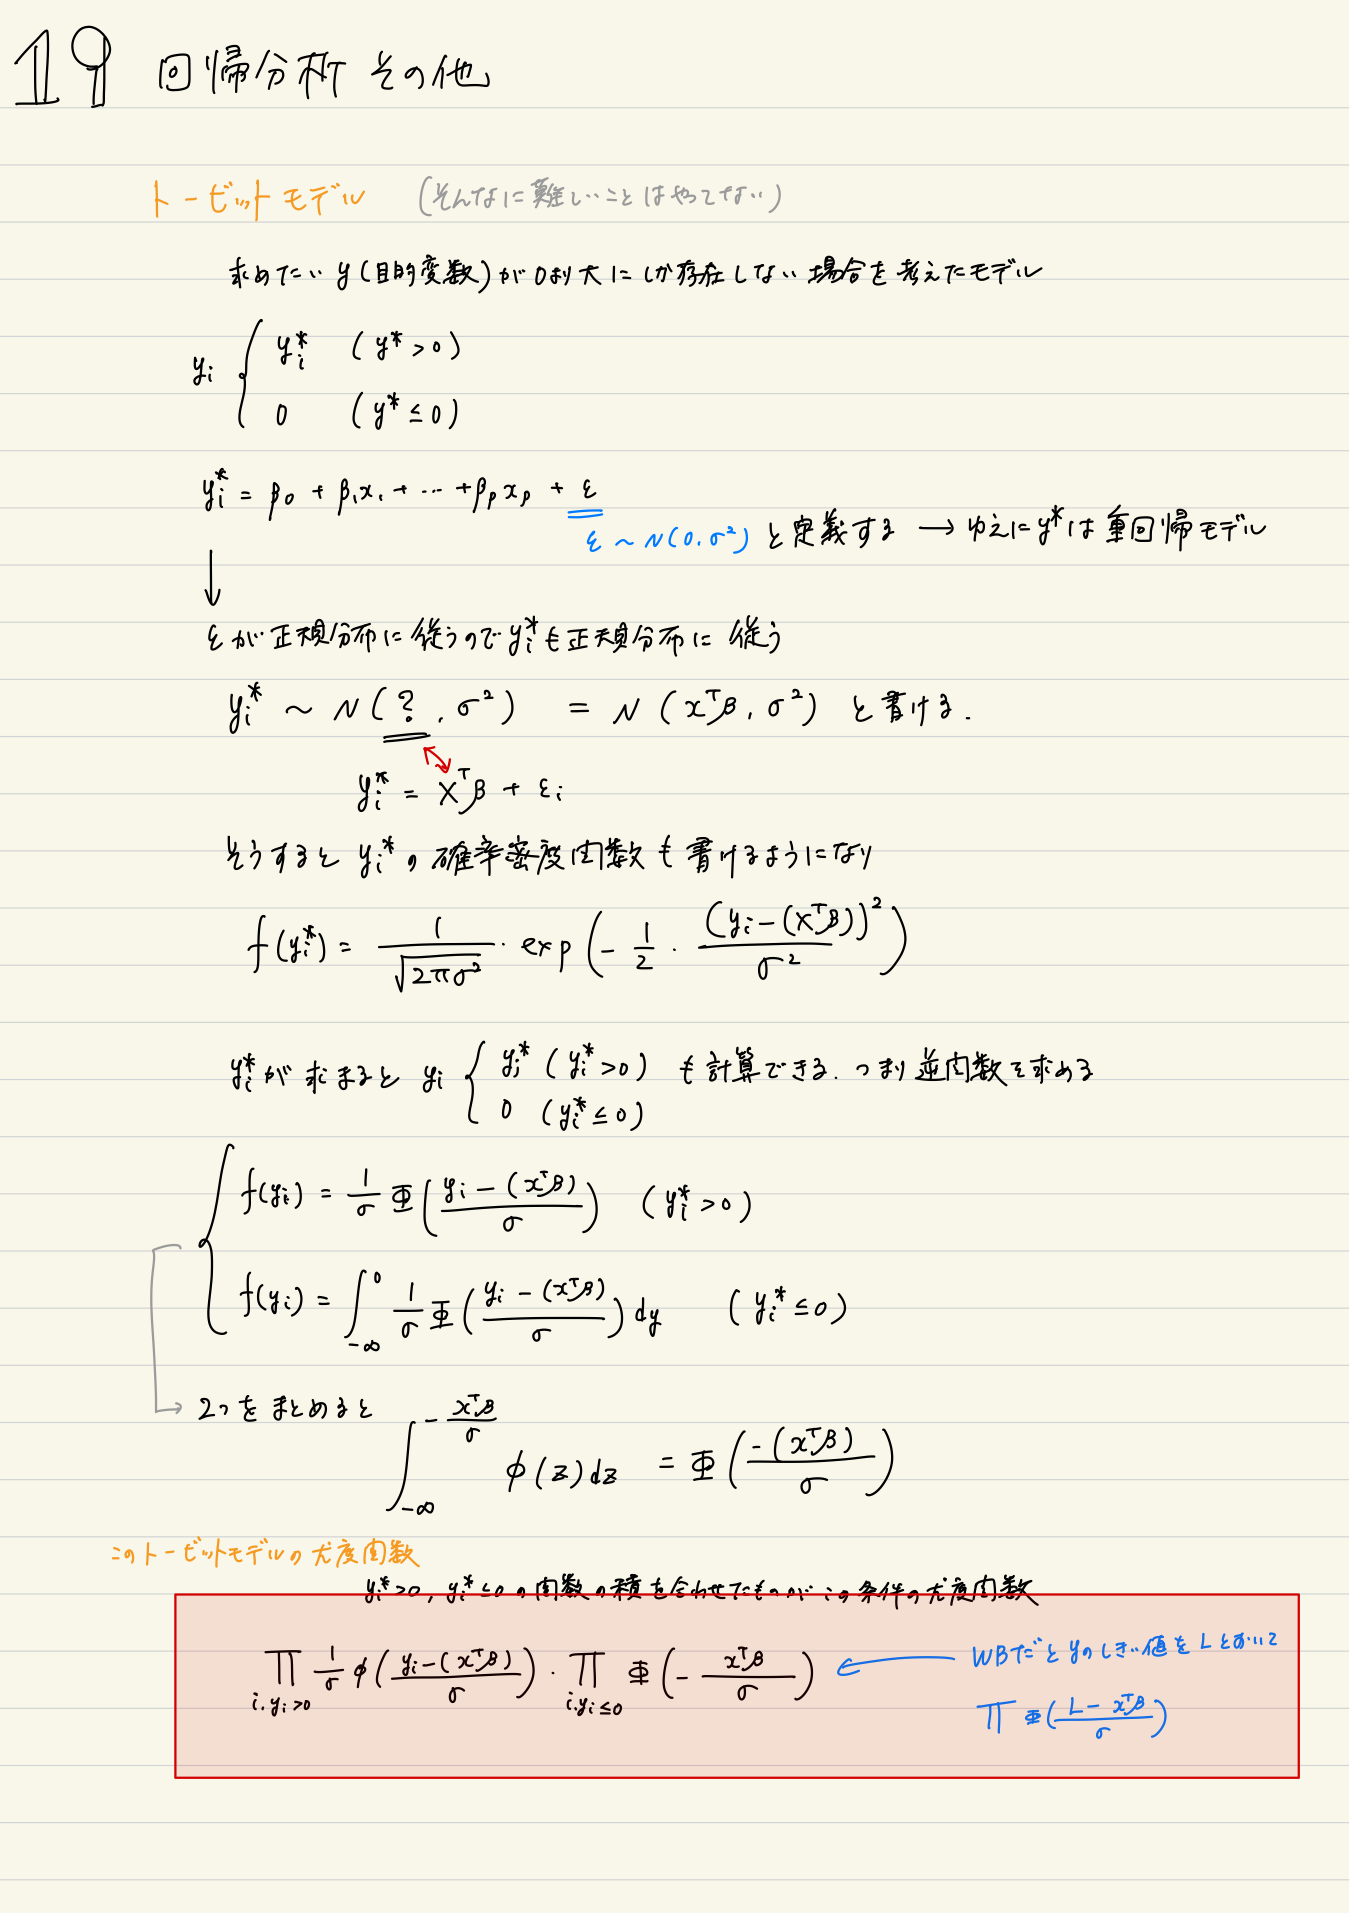 19 回帰分析 その他
トービットモデル (そんなに難しいことはやってない)
求めたい y (目的変数) が 0より大にしか存在しない場合を考えたモデル
yi { yi* (y* > 0)
0 (y* ≤ 0)
yi* = β0 + β1x1 + … + βpxp + ε
ε ~ N(0, σ²) と定義する → ゆえに y* は重回帰モデル
↓
εが正規分布に従うので yi* も正規分布に従う
yi* ~ N(?, σ²) = N(xᵀβ, σ²) と書ける.
yi* = Xᵀβ + εi
そうすると yi* の確率密度関数も書けるようになり
f(yi*) = 1/√(2πσ²) · exp(- 1/2 · (yi - (Xᵀβ))²/σ²)
yi* が求まると yi { yi* (yi* > 0) も計算できる. つまり逆関数を求める
0 (yi* ≤ 0)
f(yi) = 1/σ Φ((yi - (xᵀβ))/σ) (yi* > 0)
f(yi) = ∫_{-∞}^{0} 1/σ Φ((yi - (xᵀβ))/σ) dy (yi* ≤ 0)
→ 2つをまとめると ∫_{-∞}^{-xᵀβ/σ} φ(z)dz = Φ(-(xᵀβ)/σ)
このトービットモデルの尤度関数
yi* > 0, yi* ≤ 0 の関数の積を合わせたものがこの条件の尤度関数
∏_{i.yi>0} 1/σ φ((yi - (xᵀβ))/σ) · ∏_{i.yi≤0} Φ(- xᵀβ/σ) ← WBだと yのしきい値を L とおいて
∏ Φ((L - xᵀβ)/σ)